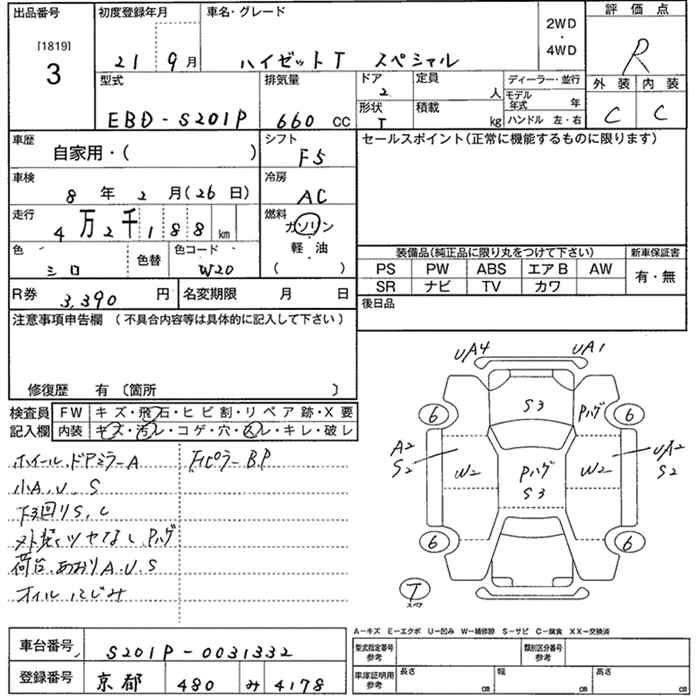 出品番号
[1819]
3
初度登録年月
21 9月
車名・グレード
ハイゼットT スペシャル
2WD
・
4WD
評価点
R
外装 内装
C C
型式
EBD-S201P
排気量
660 CC
ドア
2
形状
T
定員
人
積載
kg
ディーラー・並行
モデル年式 年
ハンドル 左・右
車歴
自家用・( )
シフト
F5
セールスポイント(正常に機能するものに限ります)
車検
8年2月(26日)
冷房
AC
走行
4万2千188km
燃料
ガソリン
・
軽油
( )
色
シロ
色替
色コード
W20
装備品(純正品に限り丸をつけて下さい)
新車保証書
PS PW ABS エアB AW
有・無
SR ナビ TV カワ
R券
3,390円
名変期限 月 日
後日品
注意事項申告欄 (不具合内容等は具体的に記入して下さい)
修復歴 有 〔箇所 〕
検査員
記入欄
FW キズ・飛石・ヒビ割・リペア跡・X要
内装 キズ・汚レ・コゲ・穴・スレ・キレ・破レ
ホイール、ドアミラーA
小A、U、S
下回りS、C
ツヤなし Pハゲ
荷台、あおりA、U、S
オイルにじみ
ピラーB.P
UA4 UA1
S3
Pハゲ
6 6
A2
S2
W2
Pハゲ
S3
W2
UA2
S2
6 6
T
スペア
A−キズ E−エクボ U−凹み W−補修跡 S−サビ C−腐食 XX−交換済
車台番号
S201P-0031332
登録番号
京都 480 み 4178
型式指定番号
参考
類別区分番号
参考
車庫証明用
参考
長さ cm
幅 cm
高さ cm